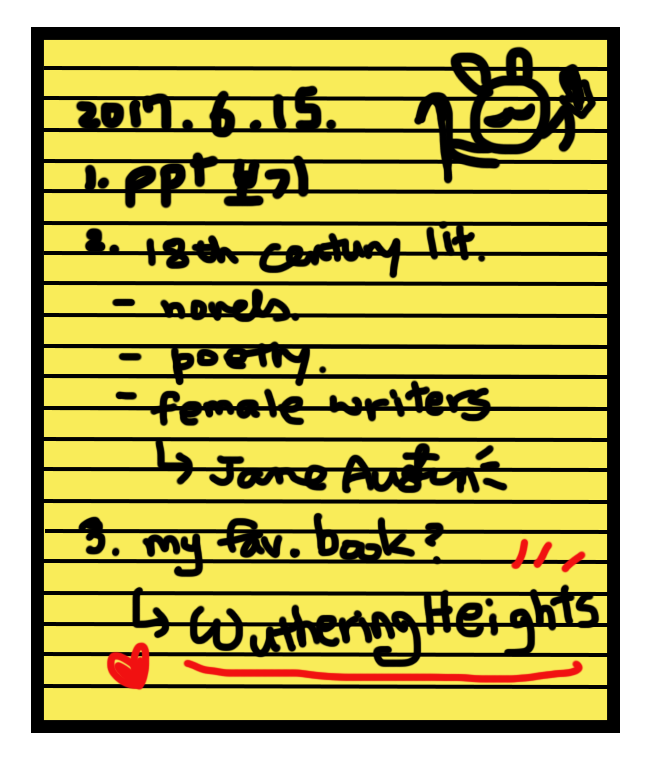 2017. 6. 15.
1. ppt 보기
2. 18th century lit.
- novels.
- poetry.
- female writers
↳ Jane Austin
3. my fav. book?
↳ Wuthering Heights